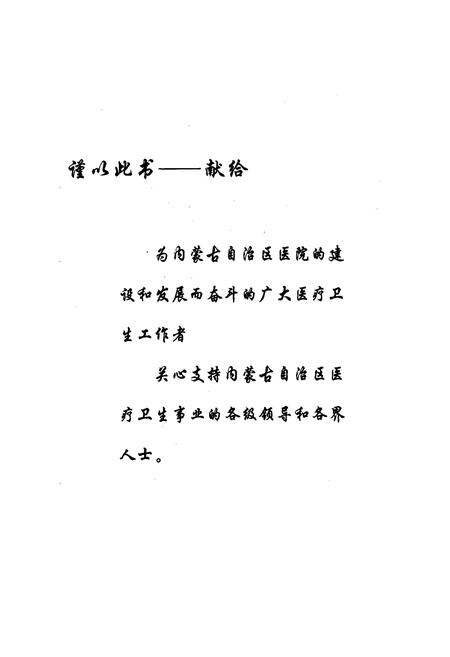 谨以此书——献给
为内蒙古自治区医院的建
设和发展而奋斗的广大医疗卫
生工作者
关心支持内蒙古自治区医
疗卫生事业的各级领导和各界
人士。